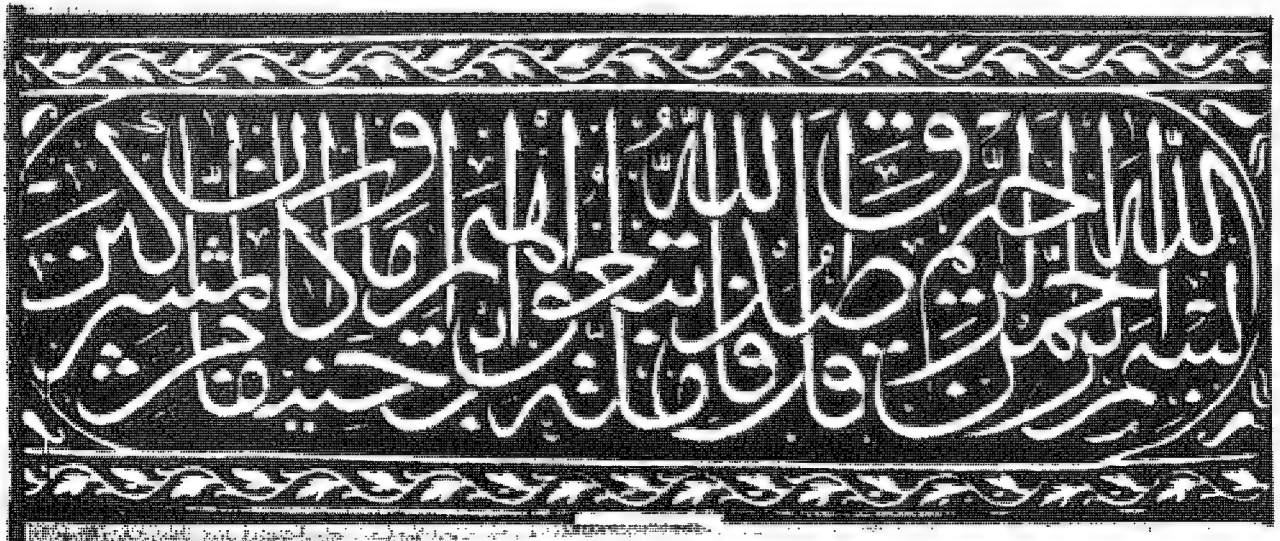 بسم الله الرحمن الرحيم قل صدق الله فاتبعوا ملة ابراهيم حنيفا وما كان من المشركين